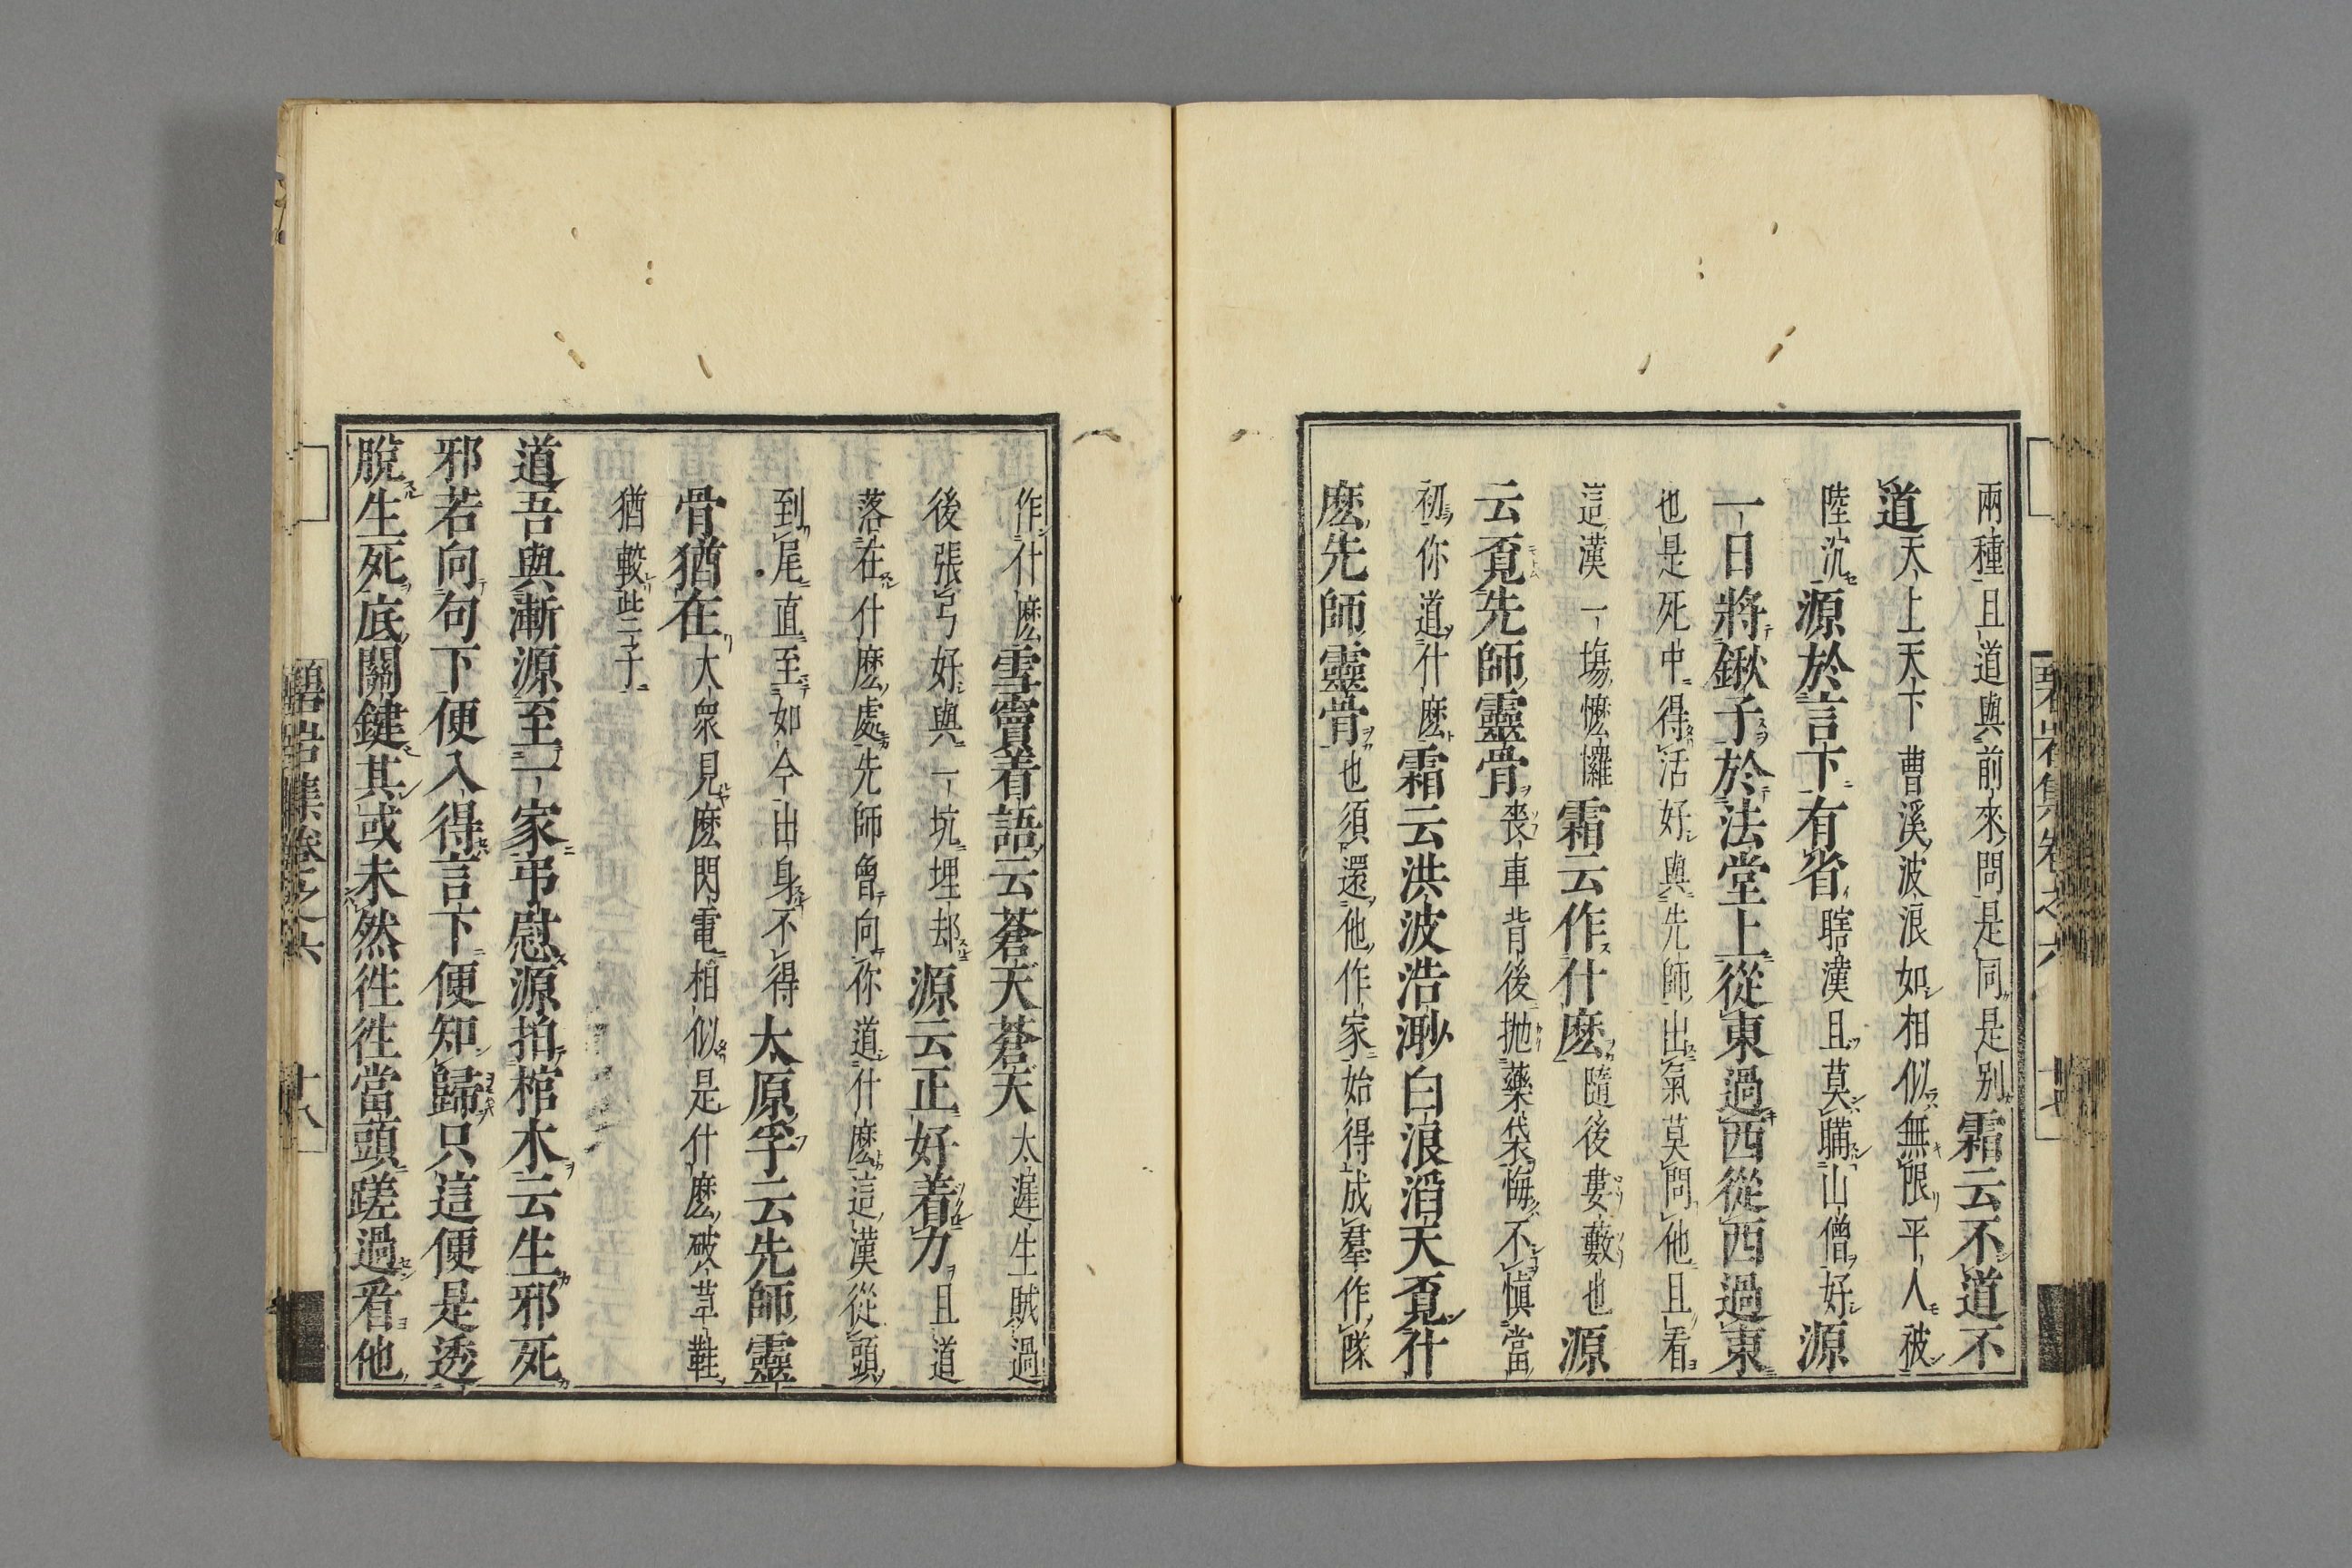 兩種且道與前來問是同是別霜云不道不
道天上天下曹溪波浪如相似無限平人被
陸沉源於言下有省瞎漢且莫瞞山僧好源
一日將鍬子於法堂上從東過西從西過東
也是死中得活好與先師出氣莫問他且看
這漢一場懡㦬霜云作什麽隨後婁藪也源
云覔先師靈骨喪車背後拋藥袋悔不愼當
初你道什麽霜云洪波浩渺白浪滔天覔什
麽先師靈骨也須還他作家始得成羣作隊
作什麽雪竇着語云蒼天蒼天太遲生賊過
後張弓好與一坑埋却源云正好着力且道
落在什麽處先師曾向你道什麽這漢從頭
到尾直至如今出身不得太原孚云先師靈
骨猶在大衆見麽閃電相似是什麽破草鞋
猶較些子
道吾與漸源至一家弔慰源拍棺木云生邪死
邪若向句下便入得言下便知歸只這便是透
脫生死底關鍵其或未然徃徃當頭蹉過看他
碧岩集卷之六
十八